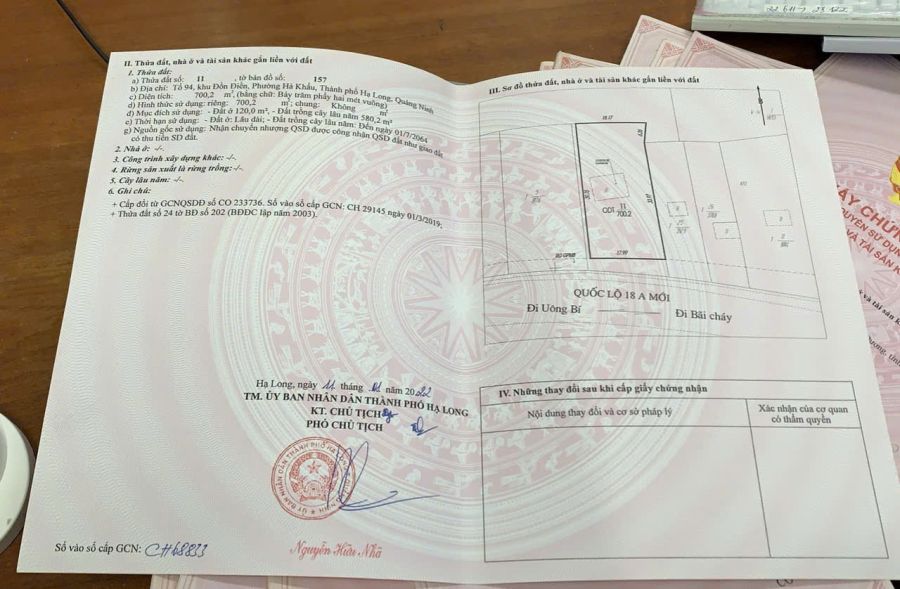 II. Thửa đất, nhà ở và tài sản khác gắn liền với đất
1. Thửa đất:
a) Thửa đất số: 11 , tờ bản đồ số: 157
b) Địa chỉ: Tổ 94, khu Đồn Điền, Phường Hà Khẩu, Thành phố Hạ Long, Quảng Ninh
c) Diện tích: 700,2 m², (bằng chữ: Bảy trăm phẩy hai mét vuông)
d) Hình thức sử dụng: riêng: 700,2 m²; chung: Không m²
đ) Mục đích sử dụng: - Đất ở 120,0 m², - Đất trồng cây lâu năm 580,2 m²
e) Thời hạn sử dụng: - Đất ở: Lâu dài; - Đất trồng cây lâu năm: Đến ngày 01/7/2064
g) Nguồn gốc sử dụng: Nhận chuyển nhượng QSD được công nhận QSD đất như giao đất
có thu tiền SD đất.
2. Nhà ở: -/-
3. Công trình xây dựng khác: -/-
4. Rừng sản xuất là rừng trồng: -/-
5. Cây lâu năm: -/-
6. Ghi chú:
+ Cấp đổi từ GCNQSDĐ số CO 233736. Số vào sổ cấp GCN: CH 29145 ngày 01/3/2019;
+ Thửa đất số 24 tờ BĐ số 202 (BĐĐC lập năm 2003).
Hạ Long, ngày 11 tháng 01 năm 2022
TM. ỦY BAN NHÂN DÂN THÀNH PHỐ HẠ LONG
KT. CHỦ TỊCH
PHÓ CHỦ TỊCH
Nguyễn Hữu Nhã
Số vào sổ cấp GCN: CH68833
III. Sơ đồ thửa đất, nhà ở và tài sản khác gắn liền với đất
18.17
ODT 11
700.2
QUỐC LỘ 18 A MỚI
Đi Uông Bí
Đi Bãi cháy
IV. Những thay đổi sau khi cấp giấy chứng nhận
Nội dung thay đổi và cơ sở pháp lý
Xác nhận của cơ quan
có thẩm quyền